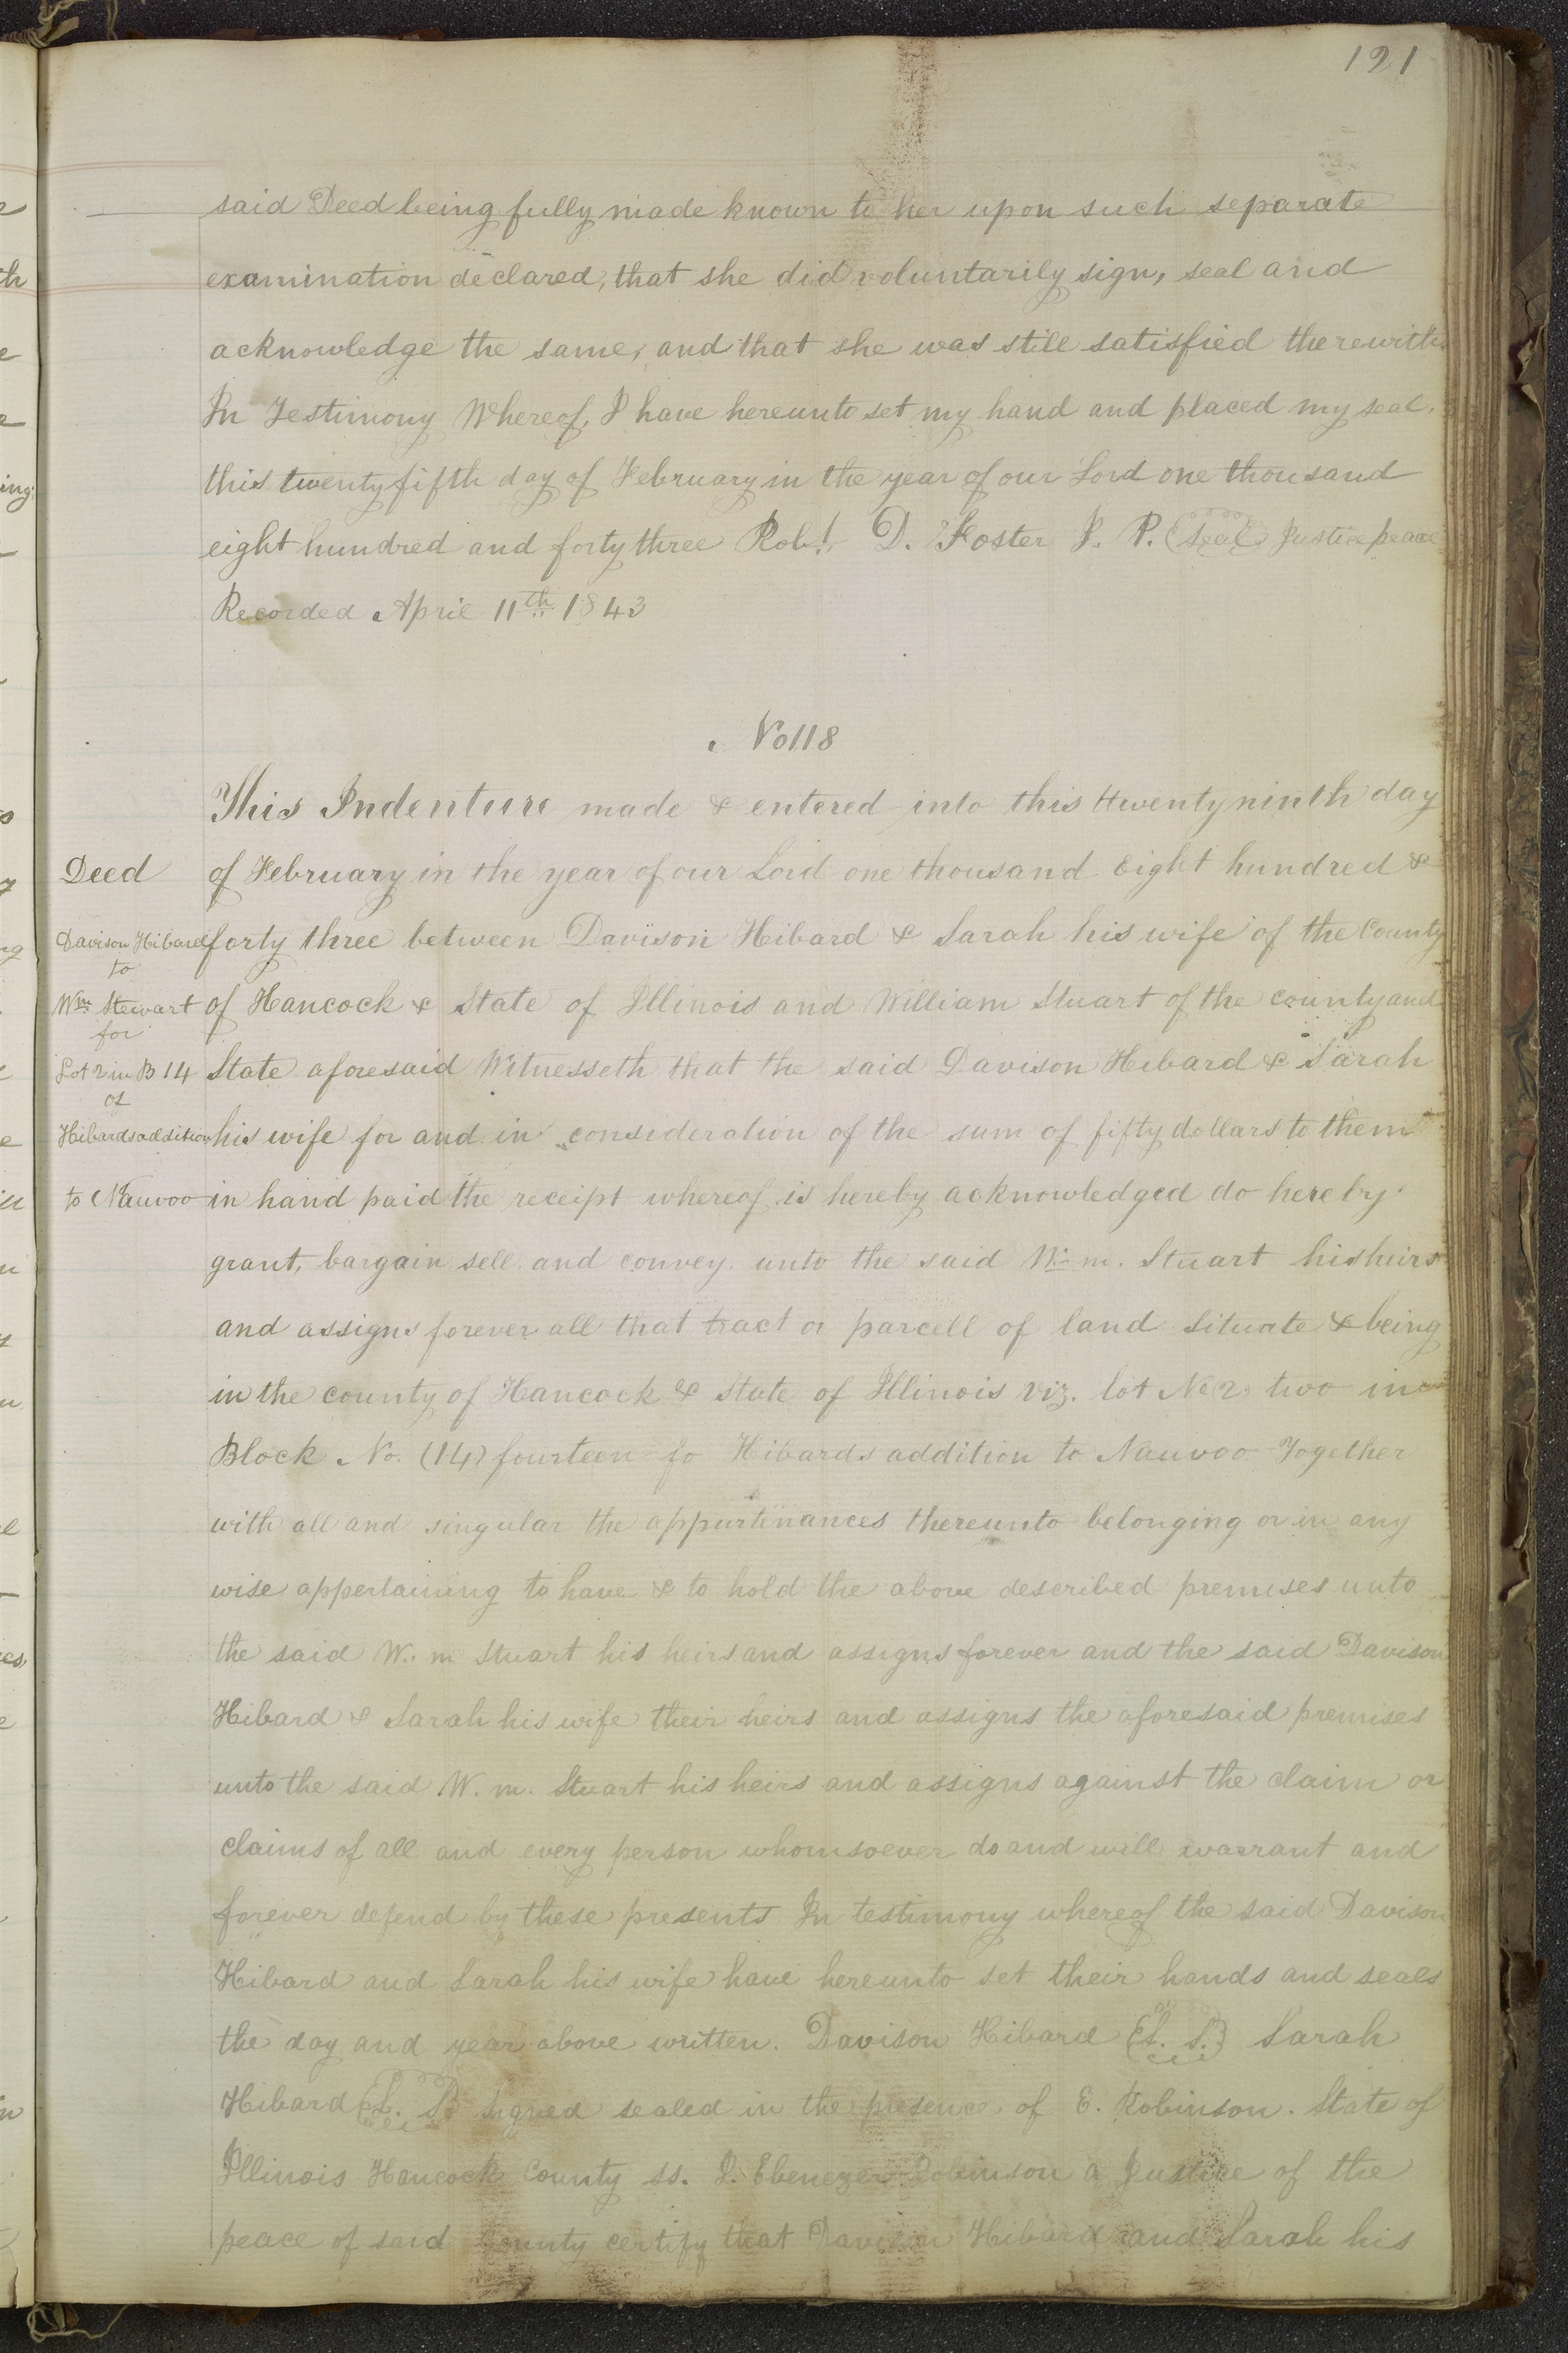 121
said Deed being fully made known to her upon such separate
examination declared, that she did voluntarily sign, seal and
acknowledge the same, and that she was still satisfied therewith
In Testimony Whereof, I have hereunto set my hand and placed my seal,
this twenty fifth day of February in the year of our Lord one thousand
eight hundred and forty three Robt D. Foster J. P. (Seal) Justice peace
Recorded April 11th 1843
No 118
This Indenture made & entered into this twenty ninth day
Deed
of February in the year of our Lord one thousand Eight hundred &
Davison Hibard
forty three between Davison Hibard & Sarah his wife of the County
to
Wm Stewart
of Hancock & State of Illinois and William Stuart of the county and
for
Lot 2 in B 14
State aforesaid Witnesseth that the said Davison Hibard & Sarah
of
Hibards addition
his wife for and in consideration of the sum of fifty dollars to them
to Nauvoo
in hand paid the receipt whereof is hereby acknowledged do hereby
grant, bargain, sell, and convey unto the said W.m. Stuart his heirs
and assigns forever all that tract or parcell of land situate & being
in the county of Hancock & State of Illinois viz. lot No (2) two in
Block No. (14) fourteen fo Hibards addition to Nauvoo Together
with all and singular the appurtinances thereunto belonging or in any
wise appertaining to have & to hold the above described premises unto
the said W. m Stuart his heirs and assigns forever and the said Davison
Hibard & Sarah his wife their heirs and assigns the aforesaid premises
unto the said W. m. Stuart his heirs and assigns against the claim or
claims of all and every person whomsoever do and will warrant and
forever defend by these presents In testimony whereof the said Davison
Hibard and Sarah his wife have hereunto set their hands and seals
the day and year above written. Davison Hibard {L. S.} Sarah
Hibard {L. S} Signed sealed in the presence of E. Robinson. State of
Illinois Hancock County ss. I. Ebenezer Robinson a Justice of the
peace of said County certify that Davison Hibard and Sarah his